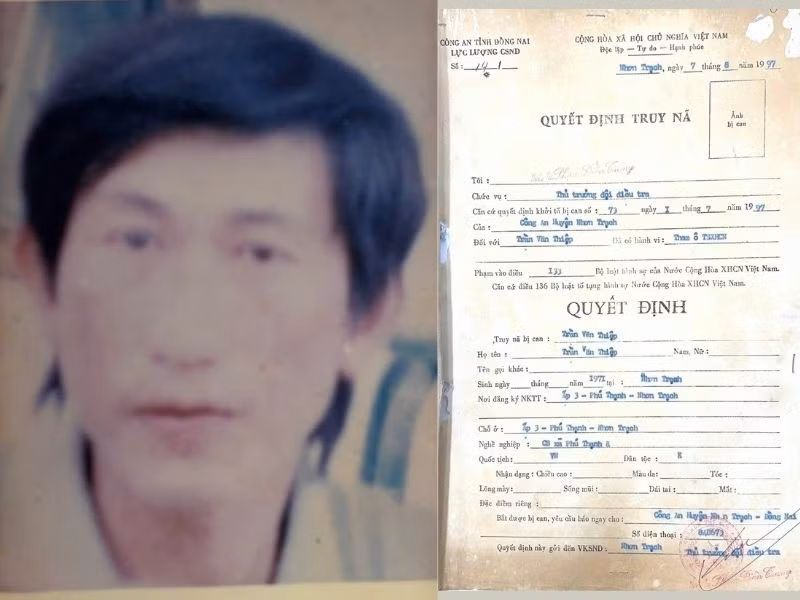 CÔNG AN TỈNH ĐỒNG NAI
LỰC LƯỢNG CSND
Số: 14
CỘNG HÒA XÃ HỘI CHỦ NGHĨA VIỆT NAM
Độc lập — Tự do — Hạnh phúc
Nhơn Trạch, ngày 7 tháng 8 năm 1997
QUYẾT ĐỊNH TRUY NÃ
Ảnh
bị can
Tôi :
Chức vụ : Thủ trưởng đội điều tra
Căn cứ quyết định khởi tố bị can số : 73 ngày I tháng 7 năm 1997
Của : Công An Huyện Nhơn Trạch
Đối với Trần Văn Thiệp Đã có hành vi : Tham ô TSXHCN
Phạm vào điều I33 Bộ luật hình sự của Nước Cộng Hòa XHCN Việt Nam.
Căn cứ điều 136 Bộ luật tố tụng hình sự Nước Cộng Hòa XHCN Việt Nam.
QUYẾT ĐỊNH
Truy nã bị can : Trần Văn Thiệp
Họ tên : Trần Văn Thiệp Nam, Nữ :
Tên gọi khác:
Sinh ngày tháng năm 1971 tại : Nhơn Trạch
Nơi đăng ký NKTT : Ấp 3 - Phú Thạnh - Nhơn Trạch
Chỗ ở : Ấp 3 - Phú Thạnh - Nhơn Trạch
Nghề nghiệp : CB xã Phú Thạnh
Quốc tịch: VN Dân tộc : K
Nhận dạng : Chiều cao : Màu da: Tóc :
Lông mày: Sống mũi : Dái tai : Mắt:
Đặc điểm riêng :
Bắt được bị can, yêu cầu báo ngay cho : Công An Huyện Nhơn Trạch - Đồng Nai
Số điện thoại :
Quyết định này gởi đến VKSND: Nhơn Trạch Thủ trưởng đội điều tra